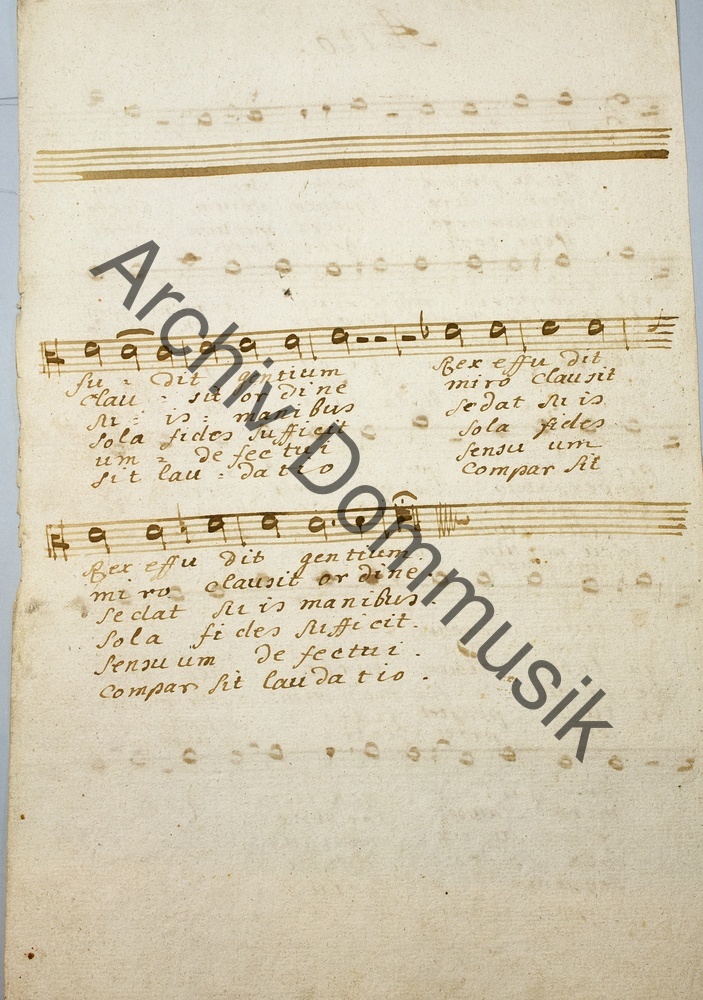 su - dit gentium Rex effu dit
clau - sit or dine miro clausit
su - is - manibus sedat su is
sola fides sufficit sola fides
um - de fec tui sensu um
sit lau - da tio compar sit
Rex effu dit gentium.
mi ro clausit or dine.
sedat su is manibus.
sola fi des sufficit.
sensu um de fectui.
compar sit lau da tio.
Archiv Dommusik